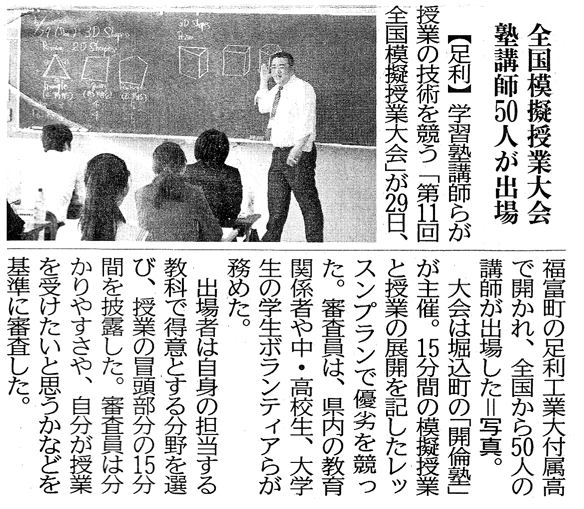 全国模擬授業大会
塾講師50人が出場
【足利】学習塾講師らが
授業の技術を競う「第11回
全国模擬授業大会」が29日、
福富町の足利工業大付属高
で開かれ、全国から50人の
講師が出場した＝写真。
大会は堀込町の「開倫塾」
が主催。15分間の模擬授業
と授業の展開を記したレッ
スンプランで優劣を競っ
た。審査員は、県内の教育
関係者や中・高校生、大学
生の学生ボランティアらが
務めた。
出場者は自身の担当する
教科で得意とする分野を選
び、授業の冒頭部分の15分
間を披露した。審査員は分
かりやすさや、自分が授業
を受けたいと思うかなどを
基準に審査した。
3D Shapes
2D Shapes
3D Shapes